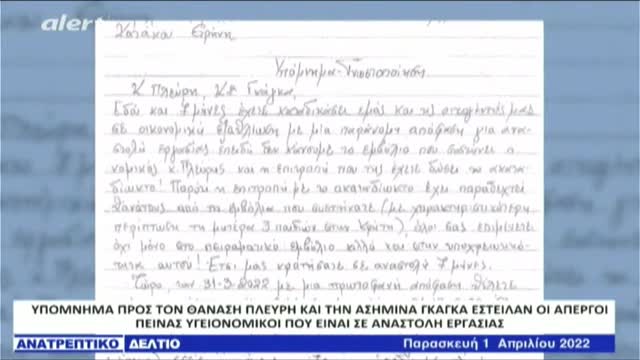 alert
Κατάκου Ειρήνη
Υπόμνημα-Γνωστοποίηση
κ Πλεύρη, Κα Γκάγκα,
Εδώ και 7 μήνες έχετε καταδικάσει εμάς και τις οικογένειές μας
σε οικονομική εξαθλίωση με μια παράνομη απόφαση για ανα-
στολή εργασίας επειδή δεν κάνουμε το εμβόλιο που συστήνει ο
νομικός κ. Πλεύρης και η επιτροπή που της έχετε δώσει το ακατα-
δίωκτο! Παρότι η επιτροπή με το ακαταδίωκτο έχει παραδεχτεί
θανάτους από τα εμβόλια που συστήνατε (με χαρακτηριστικότερη
περίπτωση τη μητέρα 3 παιδιών στην Κρήτη), όλοι σας επιμένετε
όχι μόνο στο πειραματικό εμβόλιο αλλά και στην υποχρεωτικό-
τητα αυτού! Έτσι μας κρατήσατε σε αναστολή 7 μήνες.
Τώρα, την 31-3-2022 με μια πρωτοφανή απόφαση θέλετε
ΥΠΟΜΝΗΜΑ ΠΡΟΣ ΤΟΝ ΘΑΝΑΣΗ ΠΛΕΥΡΗ ΚΑΙ ΤΗΝ ΑΣΗΜΙΝΑ ΓΚΑΓΚΑ ΕΣΤΕΙΛΑΝ ΟΙ ΑΠΕΡΓΟΙ
ΠΕΙΝΑΣ ΥΓΕΙΟΝΟΜΙΚΟΙ ΠΟΥ ΕΙΝΑΙ ΣΕ ΑΝΑΣΤΟΛΗ ΕΡΓΑΣΙΑΣ
ΑΝΑΤΡΕΠΤΙΚΟ ΔΕΛΤΙΟ Παρασκευή 1 Απριλίου 2022